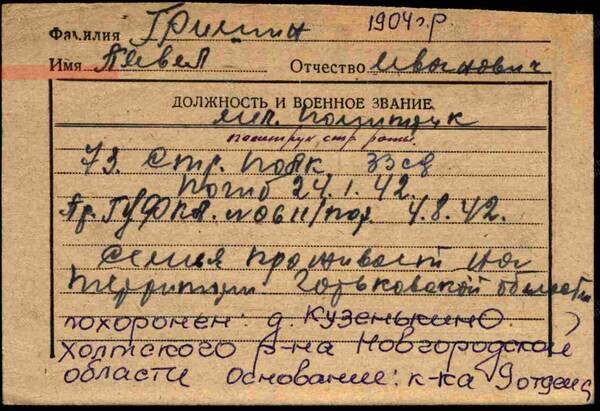 Фамилия Гришин 1904 г.р.
Имя Павел Отчество Иванович
ДОЛЖНОСТЬ И ВОЕННОЕ ЗВАНИЕ
мл. политрук
политрук стр роты.
73. Стр. полк 33 сд
Погиб 24.1.42.
Пр. ГУФКА. № 0611/пог 4.8.42.
Семья проживает на
территории Горьковской области
похоронен: д. Кузенькино
Холмского р-на Новгородской
области основание: к-ка 9 отдела